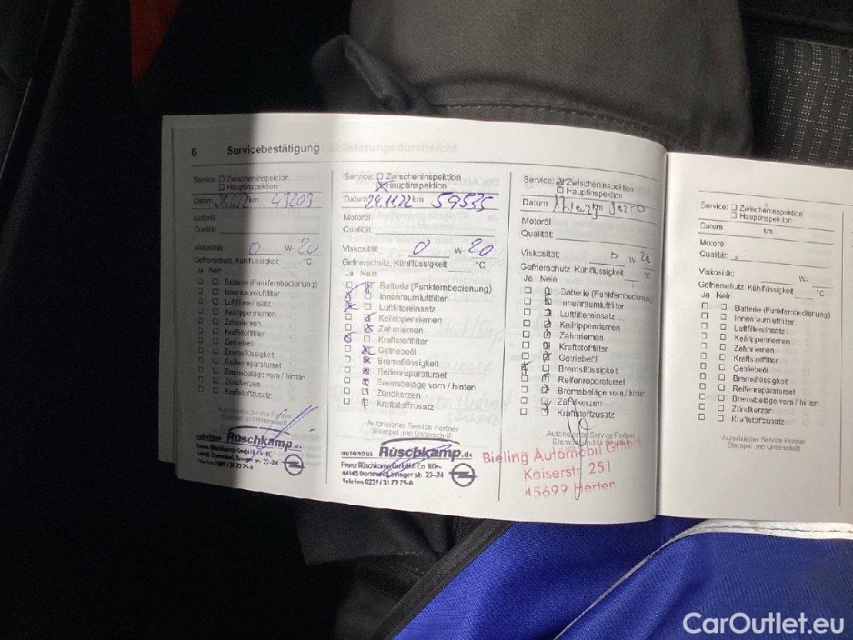 6 Servicebestätigung
Service: Zwischeninspektion
Hauptinspektion
Datum km 49203
Motoröl
Qualität:
Viskosität: 0 W-20
Gefrierschutz, Kühlflüssigkeit °C
Ja Nein
Batterie (Funkfernbedienung)
Innenraumluftfilter
Luftfiltereinsatz
Keilrippenriemen
Zahnriemen
Kraftstofffilter
Getriebeöl
Bremsflüssigkeit
Reifenreparaturset
Bremsbeläge vorn / hinten
Zündkerzen
Kraftstoffzusatz
Autorisierter Service Partner
Stempel und Unterschrift
autohaus Rüschkamp.de
Franz Rüschkamp GmbH & Co KG
Service: Zwischeninspektion
Hauptinspektion
Datum 24.11.22 km 59535
Motoröl
Qualität:
Viskosität: 0 W-20
Gefrierschutz, Kühlflüssigkeit °C
Ja Nein
Batterie (Funkfernbedienung)
Innenraumluftfilter
Luftfiltereinsatz
Keilrippenriemen
Zahnriemen
Kraftstofffilter
Getriebeöl
Bremsflüssigkeit
Reifenreparaturset
Bremsbeläge vorn / hinten
Zündkerzen
Kraftstoffzusatz
Autorisierter Service Partner
Stempel und Unterschrift
autohaus Rüschkamp.de
Franz Rüschkamp GmbH & Co KG
44145 Dortmund, Evinger str. 22-24
Service: Zwischeninspektion
Hauptinspektion
Datum km
Motoröl
Qualität:
Viskosität: 0 W-20
Gefrierschutz, Kühlflüssigkeit °C
Ja Nein
Batterie (Funkfernbedienung)
Innenraumluftfilter
Luftfiltereinsatz
Keilrippenriemen
Zahnriemen
Kraftstofffilter
Getriebeöl
Bremsflüssigkeit
Reifenreparaturset
Bremsbeläge vorn / hinten
Zündkerzen
Kraftstoffzusatz
Autorisierter Service Partner
Stempel und Unterschrift
Bieling Automobil GmbH
Kaiserstr. 251
45699 Herten
Service: Zwischeninspektion
Hauptinspektion
Datum km
Motoröl
Qualität:
Viskosität: W-
Gefrierschutz, Kühlflüssigkeit °C
Ja Nein
Batterie (Funkfernbedienung)
Innenraumluftfilter
Luftfiltereinsatz
Keilrippenriemen
Zahnriemen
Kraftstofffilter
Getriebeöl
Bremsflüssigkeit
Reifenreparaturset
Bremsbeläge vorn / hinten
Zündkerzen
Kraftstoffzusatz
Autorisierter Service Partner
Stempel und Unterschrift
CarOutlet.eu